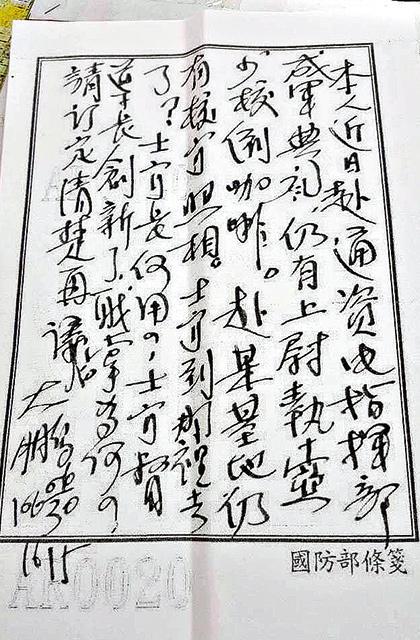 本人近日赴通資電指揮部
成軍典禮仍有上尉執壺
少校倒咖啡。赴某基地仍
有校官照相。士官到那裡去
了?士官長何用?士官督
導長創新了,職掌為何?
請訂定清楚再議。大鵬
1615
國防部條箋
0020